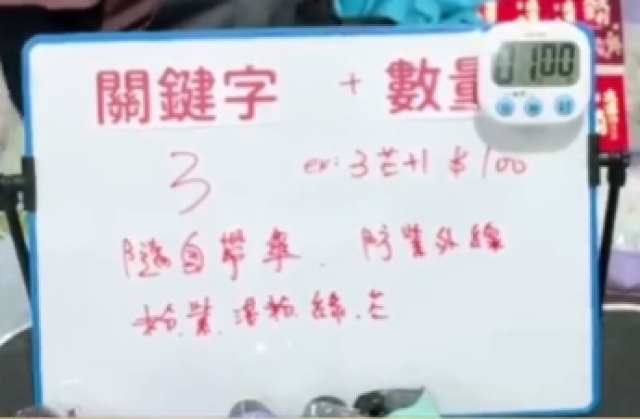 關鍵字 + 數量
1:00
3 ex: 3芒+1 $100
隨自帶傘. 防紫外線
粉.紫.湯粉.綠.芒